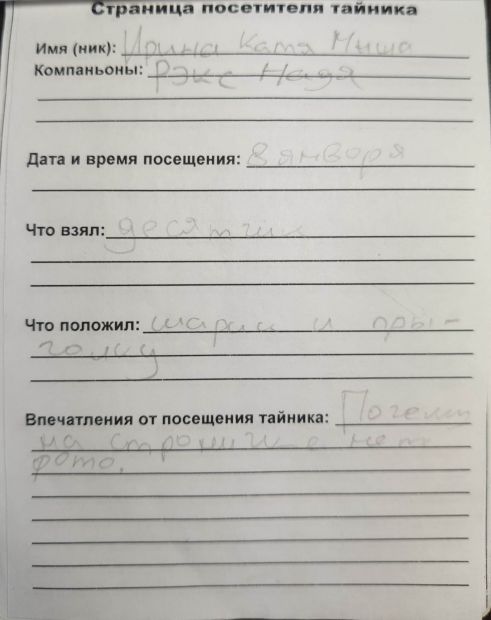 Страница посетителя тайника
Имя (ник): Ирина Катя Миша
Компаньоны: Рэкс Надя
Дата и время посещения: 8 января
Что взял: десятчик
Что положил: шарик и пры-
голку
Впечатления от посещения тайника: Почему
на строничке нет
фото.